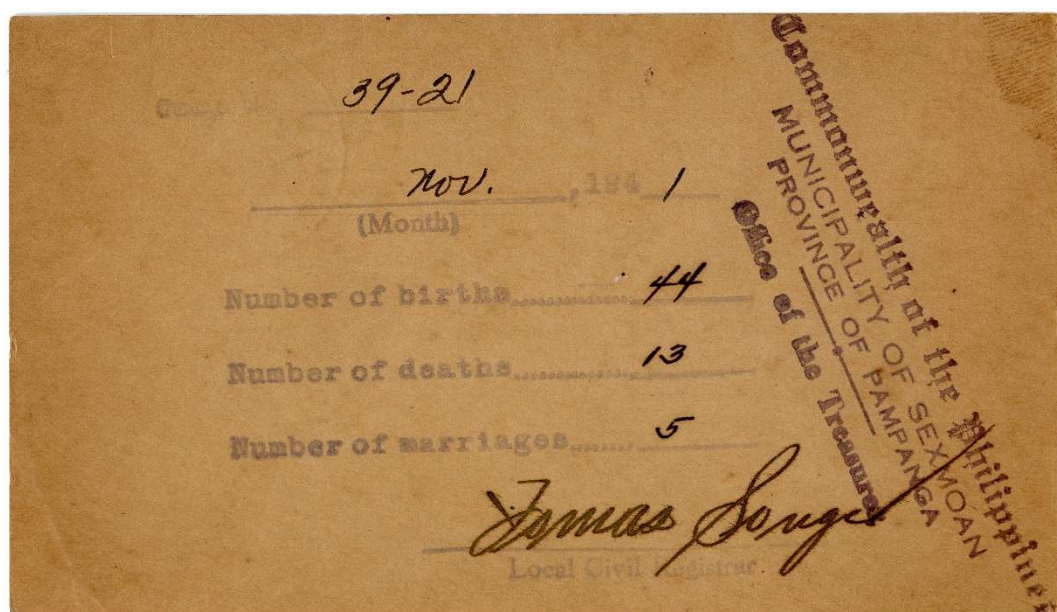 39-21
Nov. , 194 1
(Month)
Number of births 44
Number of deaths 13
Number of marriages 5
Tomas
Local Civil Registrar
Commonwealth of the Philippines
MUNICIPALITY OF SEXMOAN
PROVINCE OF PAMPANGA
Office of the Treasurer